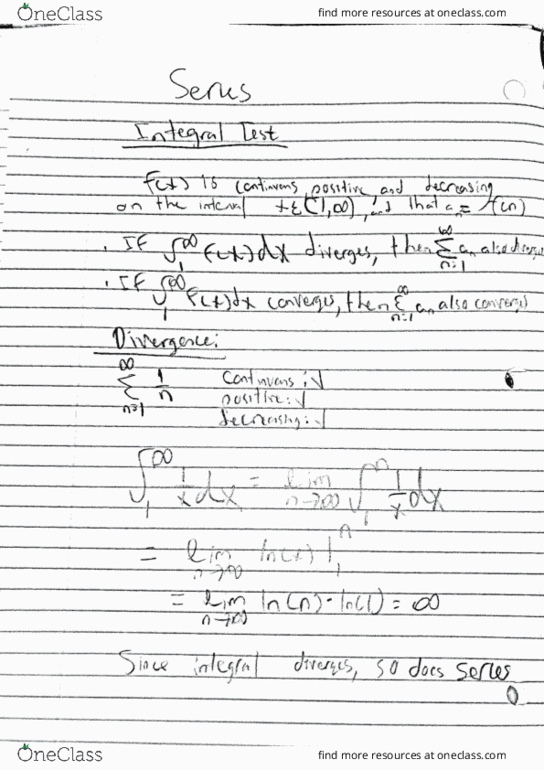 OneClass
find more resources at oneclass.com
Series
Integral Test
f(x) is continuous, positive, and decreasing
on the interval x ∈ [1,∞), and that aₙ = f(n)
· If ∫₁^∞ f(x)dx diverges, then Σₙ₌₁^∞ aₙ also diverges
· If ∫₁^∞ f(x)dx converges, then Σₙ₌₁^∞ aₙ also converges
Divergence:
Σₙ₌₁^∞ 1/n continuous: √
positive: √
decreasing: √
∫₁^∞ 1/x dx = lim n→∞ ∫₁^n 1/x dx
= lim n→∞ ln(x) |₁^n
= lim n→∞ ln(n) - ln(1) = ∞
Since integral diverges, so does series
OneClass
find more resources at oneclass.com